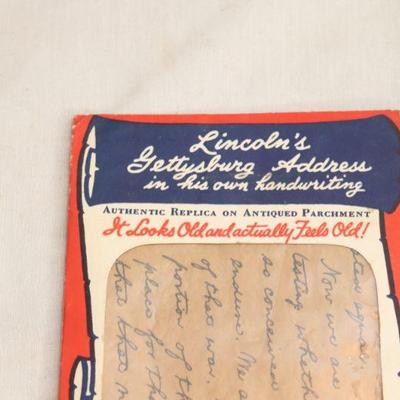 Lincoln's
Gettysburg Address
in his own handwriting
AUTHENTIC REPLICA ON ANTIQUED PARCHMENT
It Looks Old and actually Feels Old!
equal.
Now we are
testing wheth
so conceived
endure. We a
of that war.
portion of th
place for tho
that that n